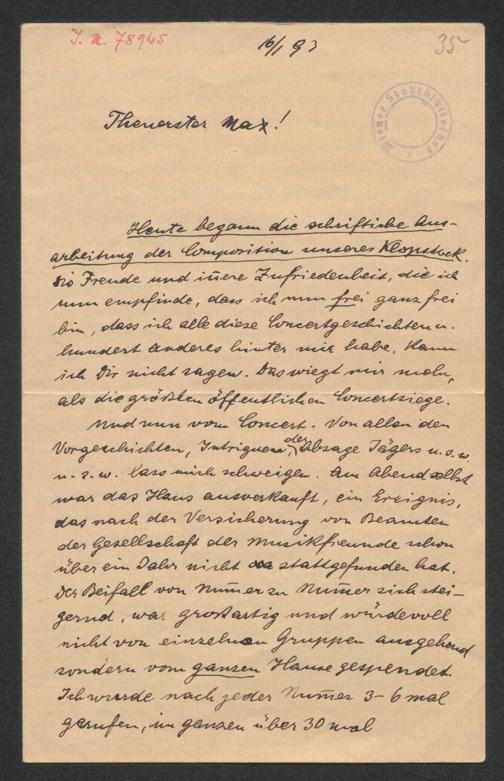 J. N. 78945
16/1 93
35
Wiener Stadtbibliothek
Theuerster Max!
Heute begann die schriftliche Aus-
arbeitung der Composition unseres Klopstock.
Die Freude und innere Zufriedenheit, die ich
nun empfinde, dass ich nun frei ganz frei
bin, dass ich alle diese Concertgeschichten u.
hundert anderes hinter mir habe, kann
ich Dir nicht sagen. Das wiegt mir mehr,
als die größten öffentlichen Concertsiege.
Und nun vom Concert. Von allen den
Vorgeschichten, Intriguen, der Absage Jägers u. s. w.
u. s. w. lass mich schweigen. Am Abend selbst
war das Haus ausverkauft, ein Ereignis,
das nach der Versicherung von Beamten
der Gesellschaft der Musikfreunde schon
über ein Jahr nicht stattgefunden hat.
Der Beifall von Num̄er zu Num̄er sich stei-
gernd, war großartig und würdevoll
nicht von einzelnen Gruppen ausgehend
sondern vom ganzen Hause gespendet.
Ich wurde nach jeder Num̄er 3-6 mal
gerufen, im ganzen über 30 mal